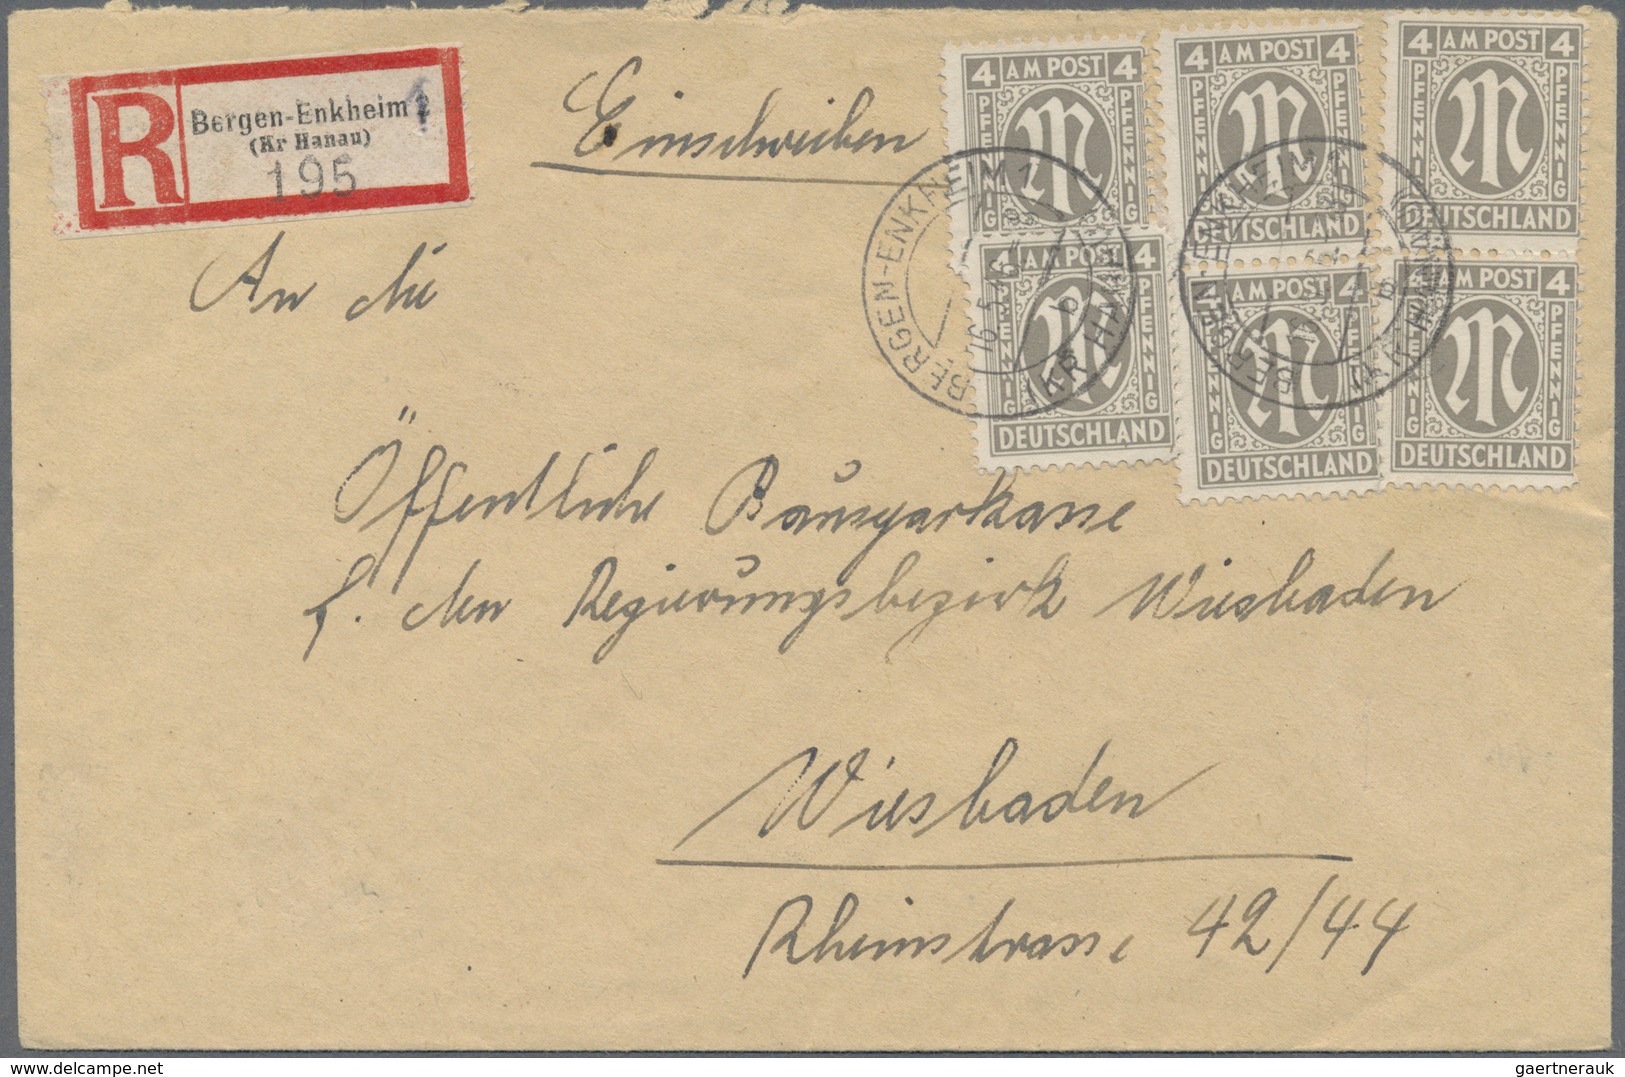 R Bergen-Enkheim 1
(Kr Hanau)
195
Einschreiben
4 AM POST 4
PFENNIG PFENNIG
DEUTSCHLAND
4 AM POST 4
PFENNIG PFENNIG
DEUTSCHLAND
4 AM POST 4
PFENNIG PFENNIG
DEUTSCHLAND
4 AM POST 4
PFENNIG PFENNIG
DEUTSCHLAND
4 AM POST 4
PFENNIG PFENNIG
DEUTSCHLAND
4 AM POST 4
PFENNIG PFENNIG
DEUTSCHLAND
BERGEN-ENKHEIM 1
16.5.46
b
(KR HANAU)
BERGEN-ENKHEIM 1
(KR HANAU)
An die
Öffentliche Bausparkasse
f. den Regierungsbezirk Wiesbaden
Wiesbaden
Rheinstrasse 42/44
delcampe.net
gaertnerauk